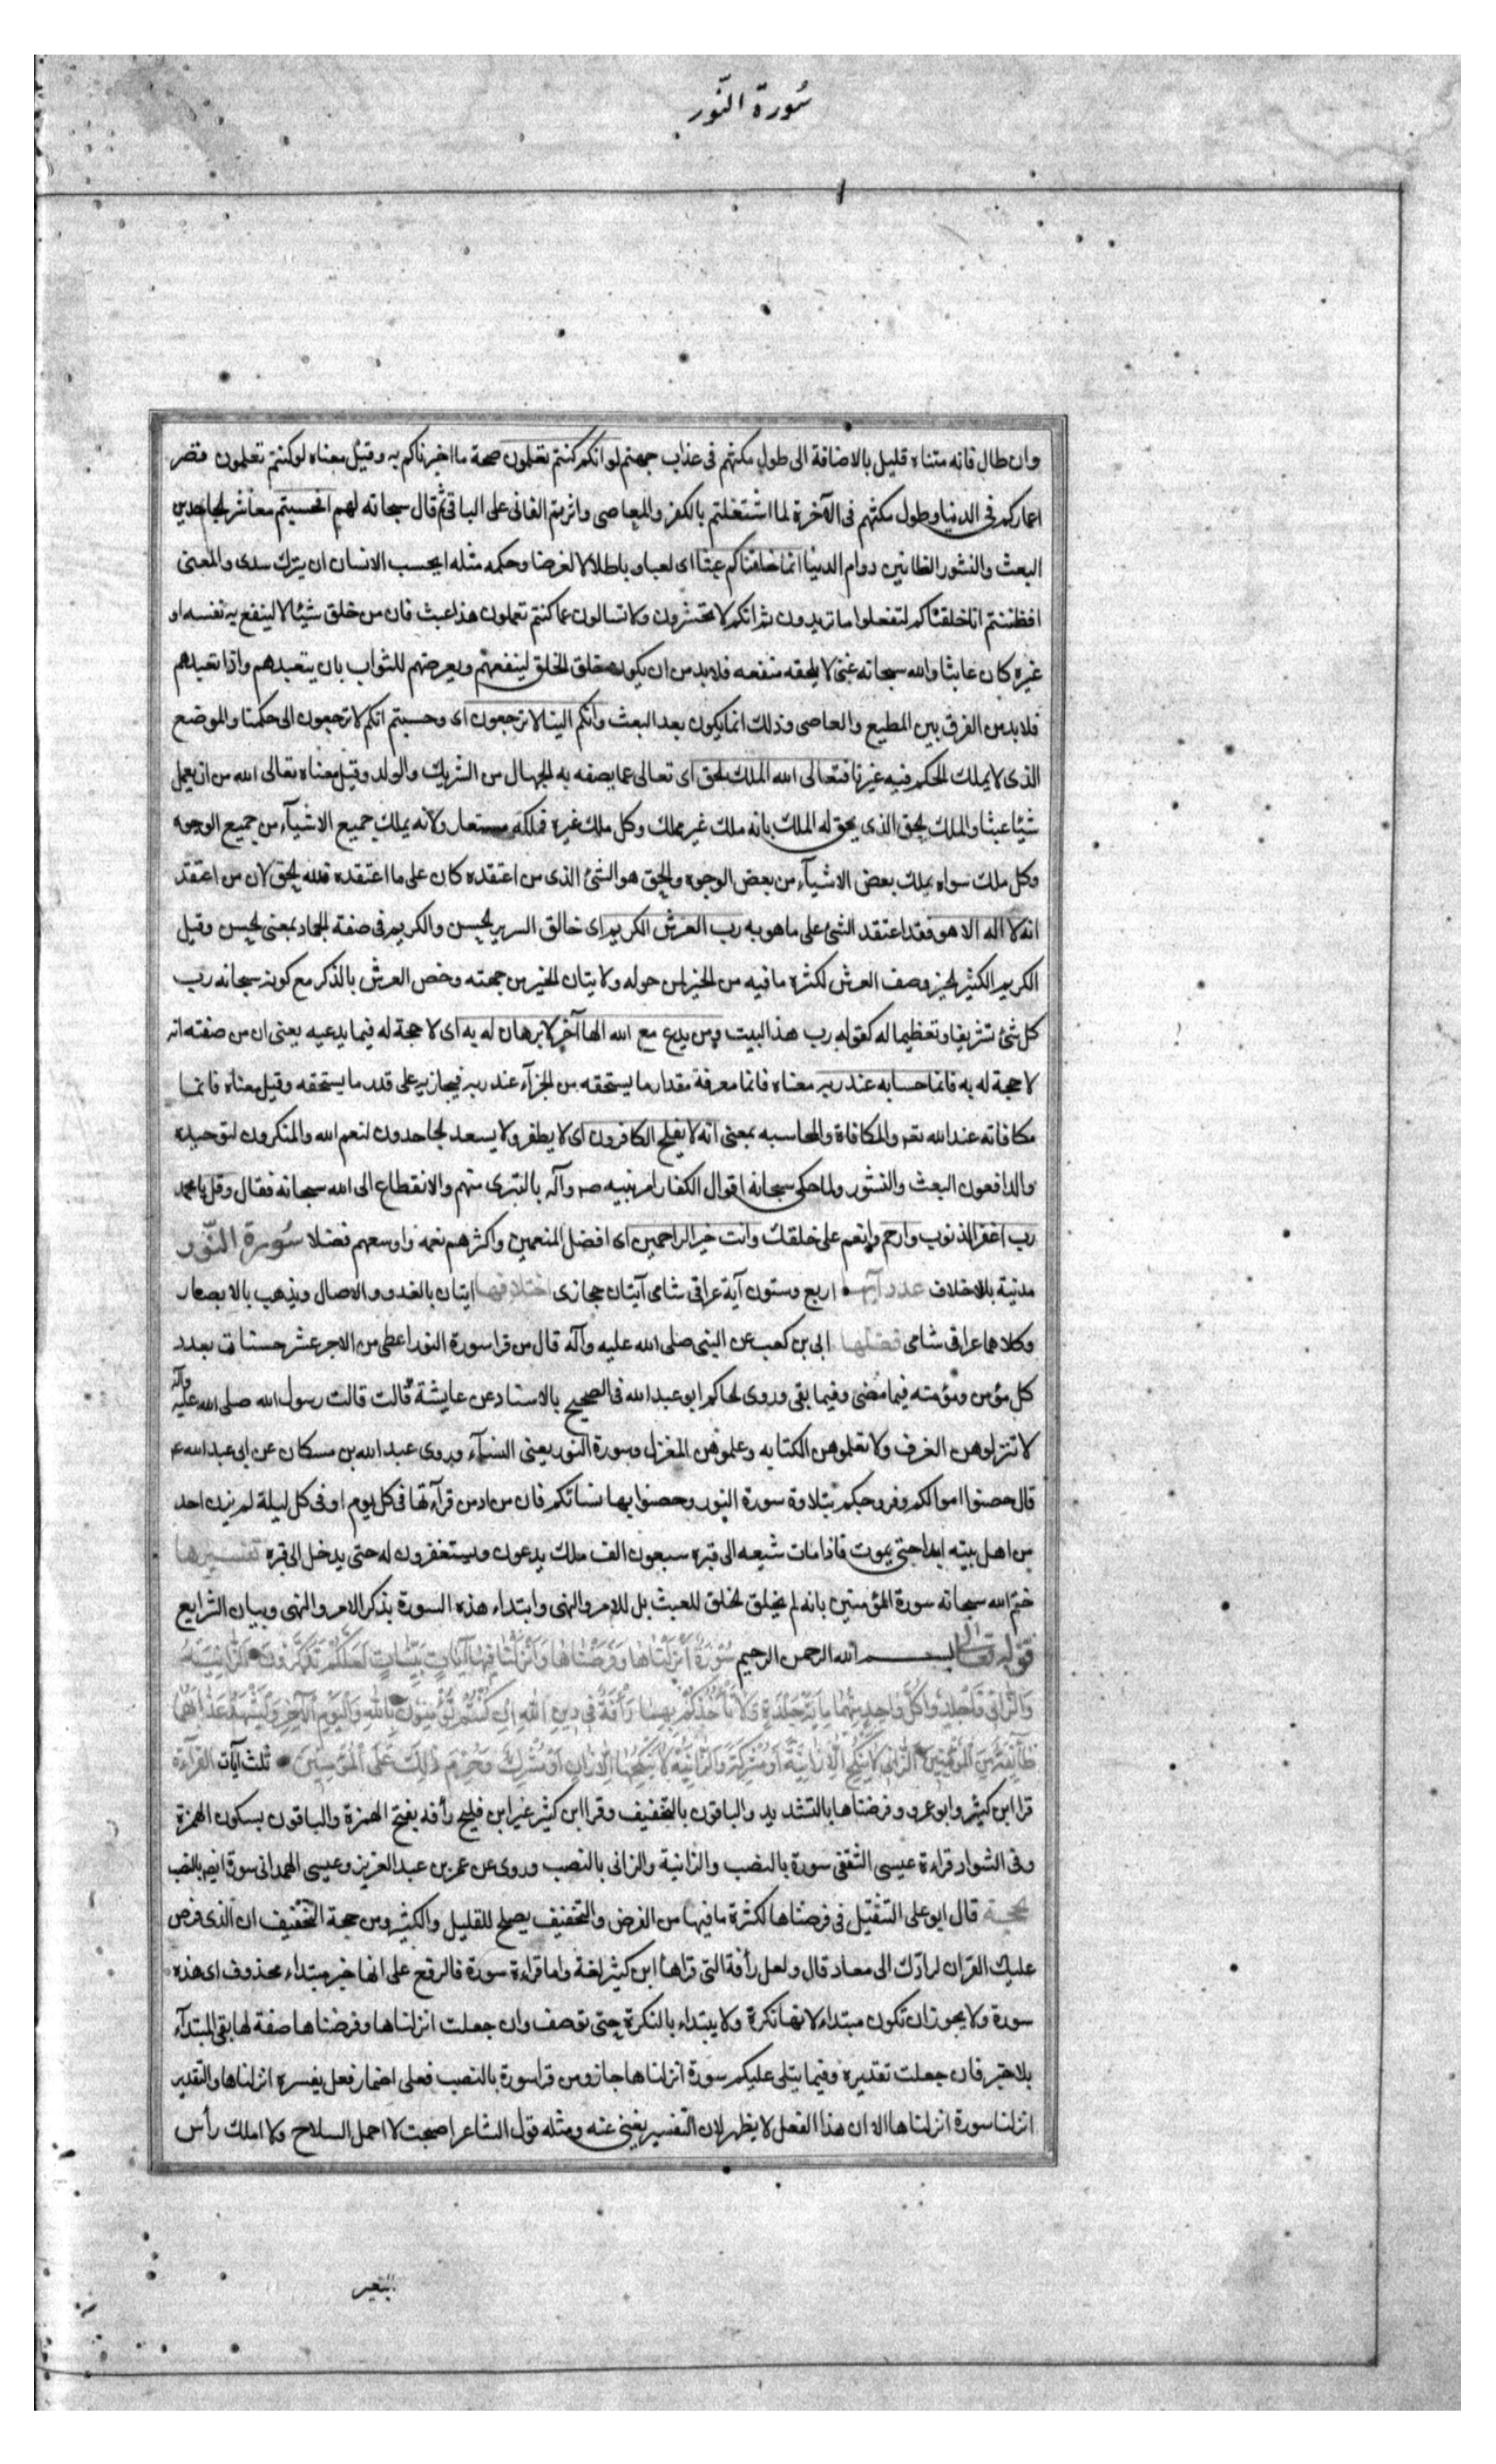 سُورة النّور
وان طال فانه متناه قليل بالاضافة الى طول مكثهم فى عذاب جهنم لو انكم كنتم تعلمون صحة ما اخبرناكم به وقيل معناه لو كنتم تعلمون قصر
اعماركم فى الدنيا وطول مكثهم فى الآخرة لما اشتغلتم بالكفر والمعاصى واثرتم الفانى على الباقى ثم قال سبحانه لهم افحسبتم معاشر الجاحدين
البعث والنشور الظانين دوام الدنيا انما خلقناكم عبثا اى لعبا وباطلا لا لغرض وحكمه مثله ايحسب الانسان ان يترك سدى والمعنى
افظننتم انا خلقناكم لتفعلوا ما تريدون ثم انكم لا تحشرون ولا تسالون عما كنتم تعملون هذا عبث فان من خلق شيئا لا لينفع به نفسه او
غيره كان عابثا والله سبحانه غنى لا يلحقه منفعه فلابد من ان يكون خلق الخلق لينفعهم ويعرضهم للثواب بان يتعبدهم واذا تعبدهم
فلابد من الفرق بين المطيع والعاصى وذلك انما يكون بعد البعث وانكم الينا لا ترجعون اى وحسبتم انكم لا ترجعون الى حكمنا والموضع
الذى لا يملك الحكم فيه غيرنا فتعالى الله الملك الحق اى تعالى عما يصفه به الجهال من الشريك والولد وقيل معناه تعالى الله من ان يعمل
شيئا عبثا والملك الحق الذى يحق له الملك بانه ملك غير مملك وكل ملك غيره فملكه مستعار ولانه يملك جميع الاشيآء من جميع الوجوه
وكل ملك سواه يملك بعض الاشيآء من بعض الوجوه والحق هو الشئ الذى من اعتقده كان على ما اعتقده فالله الحق لان من اعتقد
انه لا اله الا هو فقد اعتقد الشئ على ما هو به رب العرش الكريم اى خالق السرير الحسن والكريم فى صفة الجماد بمعنى الحسن وقيل
الكريم الكثير الخير وصف العرش لكثرة ما فيه من الخير لمن حوله ولاتيان الخير من جهته وخص العرش بالذكر مع كونه سبحانه رب
كل شئ تشريفا وتعظيما له كقوله رب هذا البيت ومن يدع مع الله الها آخر لا برهان له به اى لا حجة له فيما يدعيه يعنى ان من صفته انه
لا حجة له به فانما حسابه عند ربه معناه فانما معرفة مقدار ما يستحقه من الجزآء عند ربه فيجازيه على قدر ما يستحقه وقيل معناه فانما
مكافاته عند الله تعه والمكافاة والمحاسبه بمعنى انه لا يفلح الكافرون اى لا يظفر ولا يسعد الجاحدون لنعم الله والمنكرون لتوحيده
والدافعون البعث والنشور ولما حكى سبحانه اقوال الكفار امر نبيه صم وآله بالتبرى منهم والانقطاع الى الله سبحانه فقال وقل يا محمد
رب اغفر الذنوب وارحم وانعم على خلقك وانت خير الراحمين اى افضل المنعمين واكثرهم نعمه واوسعهم فضلا سُورة النّور
مدنية بلا خلاف عدد آيها اربع وستون آية عراقى شامى آيتان حجازى اختلافها ايتان بالغدو والاصال ويذهب بالابصار
وكلاهما عراقى شامى فضلها ابى بن كعب عن النبى صلى الله عليه وآله قال من قرا سورة النور اعطى من الاجر عشر حسنات بعدد
كل مؤمن ومؤمنه فيما مضى وفيما بقى وروى الحاكم ابو عبد الله فى الصحيح بالاسناد عن عايشة قالت قالت رسول الله صلى الله عليه وآله
لا تنزلوهن الغرف ولا تعلموهن الكتابه وعلموهن المغزل وسورة النور يعنى النسآء وروى عبد الله بن مسكان عن ابى عبد الله ع
قال حصنوا اموالكم وفروجكم بتلاوة سورة النور وحصنوا بها نسائكم فان من ادمن قرآءتها فى كل يوم او فى كل ليلة لم يزن احد
من اهل بيته ابدا حتى يموت فاذا مات شيعه الى قبره سبعون الف ملك يدعون ويستغفرون له حتى يدخل الى قبره تفسيرها
ختم الله سبحانه سورة المؤمنين بانه لم يخلق الخلق للعبث بل للامر والنهى وابتداء هذه السورة بذكر الامر والنهى وبيان الشرايع
قوله تعالى بسم الله الرحمن الرحيم سُورَةٌ أَنْزَلْنَاهَا وَفَرَضْنَاهَا وَأَنْزَلْنَا فِيهَا آيَاتٍ بَيِّنَاتٍ لَعَلَّكُمْ تَذَكَّرُونَ الزَّانِيَةُ
وَالزَّانِي فَاجْلِدُوا كُلَّ وَاحِدٍ مِنْهُمَا مِائَةَ جَلْدَةٍ وَلَا تَأْخُذْكُمْ بِهِمَا رَأْفَةٌ فِي دِينِ اللَّهِ إِنْ كُنْتُمْ تُؤْمِنُونَ بِاللَّهِ وَالْيَوْمِ الْآخِرِ وَلْيَشْهَدْ عَذَابَهُمَا
طَآئِفَةٌ مِنَ الْمُؤْمِنِينَ الزَّانِي لَا يَنْكِحُ إِلَّا زَانِيَةً أَوْ مُشْرِكَةً وَالزَّانِيَةُ لَا يَنْكِحُهَا إِلَّا زَانٍ أَوْ مُشْرِكٌ وَحُرِّمَ ذَلِكَ عَلَى الْمُؤْمِنِينَ ثلث آيات القرآءة
قرا ابن كثير وابو عمرو وفرضناها بالتشديد والباقون بالتخفيف وقرا ابن كثير غير ابن فليح رأفه بفتح الهمزة والباقون بسكون الهمزة
وفى الشواذ قراءة عيسى الثقفى سورة بالنصب والزانية والزانى بالنصب وروى عن عمر بن عبد العزيز وعيسى الهمدانى سورة ايض بالنصب
الحجة قال ابو على التثقيل فى فرضناها لكثرة ما فيها من الفرض والتخفيف يصلح للقليل والكثير ومن حجة التخفيف ان الذى فرض
عليك القران لرادّك الى معاد قال ولعل رأفة التى قراها ابن كثير لغة واما قراءة سورة فالرفع على انها خبر مبتداء محذوف اى هذه
سورة ولا يجوز ان تكون مبتداء لانها نكرة ولا يبتداء بالنكرة حتى توصف وان جعلت انزلناها وفرضناها صفة لها بقى المبتدآء
بلا خبر فان جعلت تقديره وفيما يتلى عليكم سورة انزلناها جاز ومن قرا سورة بالنصب فعلى اضمار فعل يفسره انزلناها والتقدير
انزلنا سورة انزلناها الا ان هذا الفعل لا يظهر لان التفسير يغنى عنه ومثله قول الشاعر اصبحت لا احمل السلاح ولا املك رأس
البعير